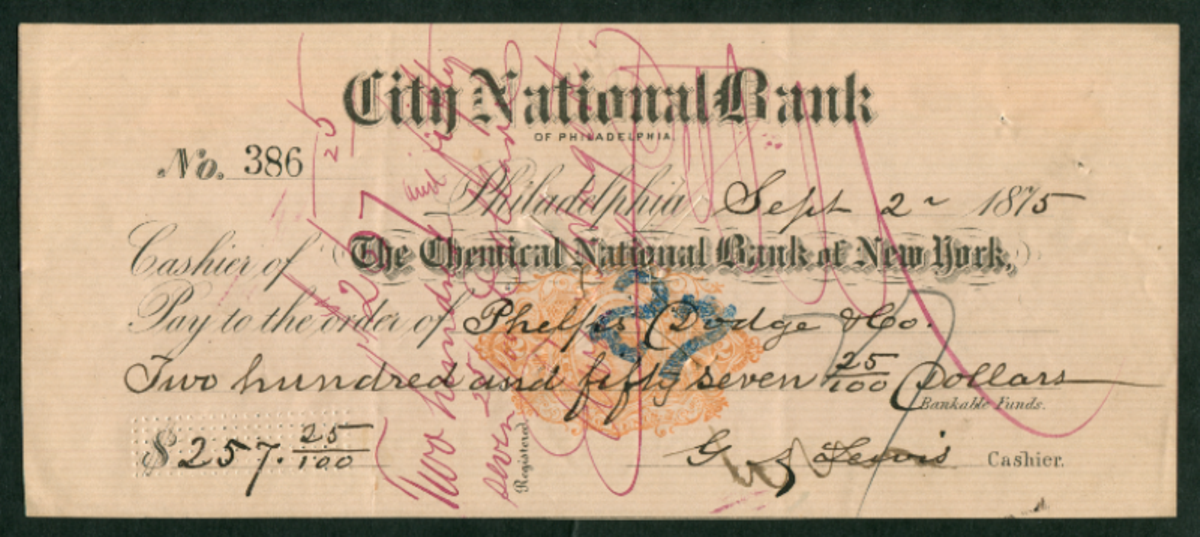 City National Bank
OF PHILADELPHIA.
No. 386
Philadelphia Sept 2 1875
Cashier of The Chemical National Bank of New York,
Pay to the order of Phelps Dodge & Co.
Two hundred and fifty seven 25/100 Dollars
Bankable Funds.
$257.25/100
G Lewis Cashier.
Registered.
$257 25
Two hundred and fifty
seven 25